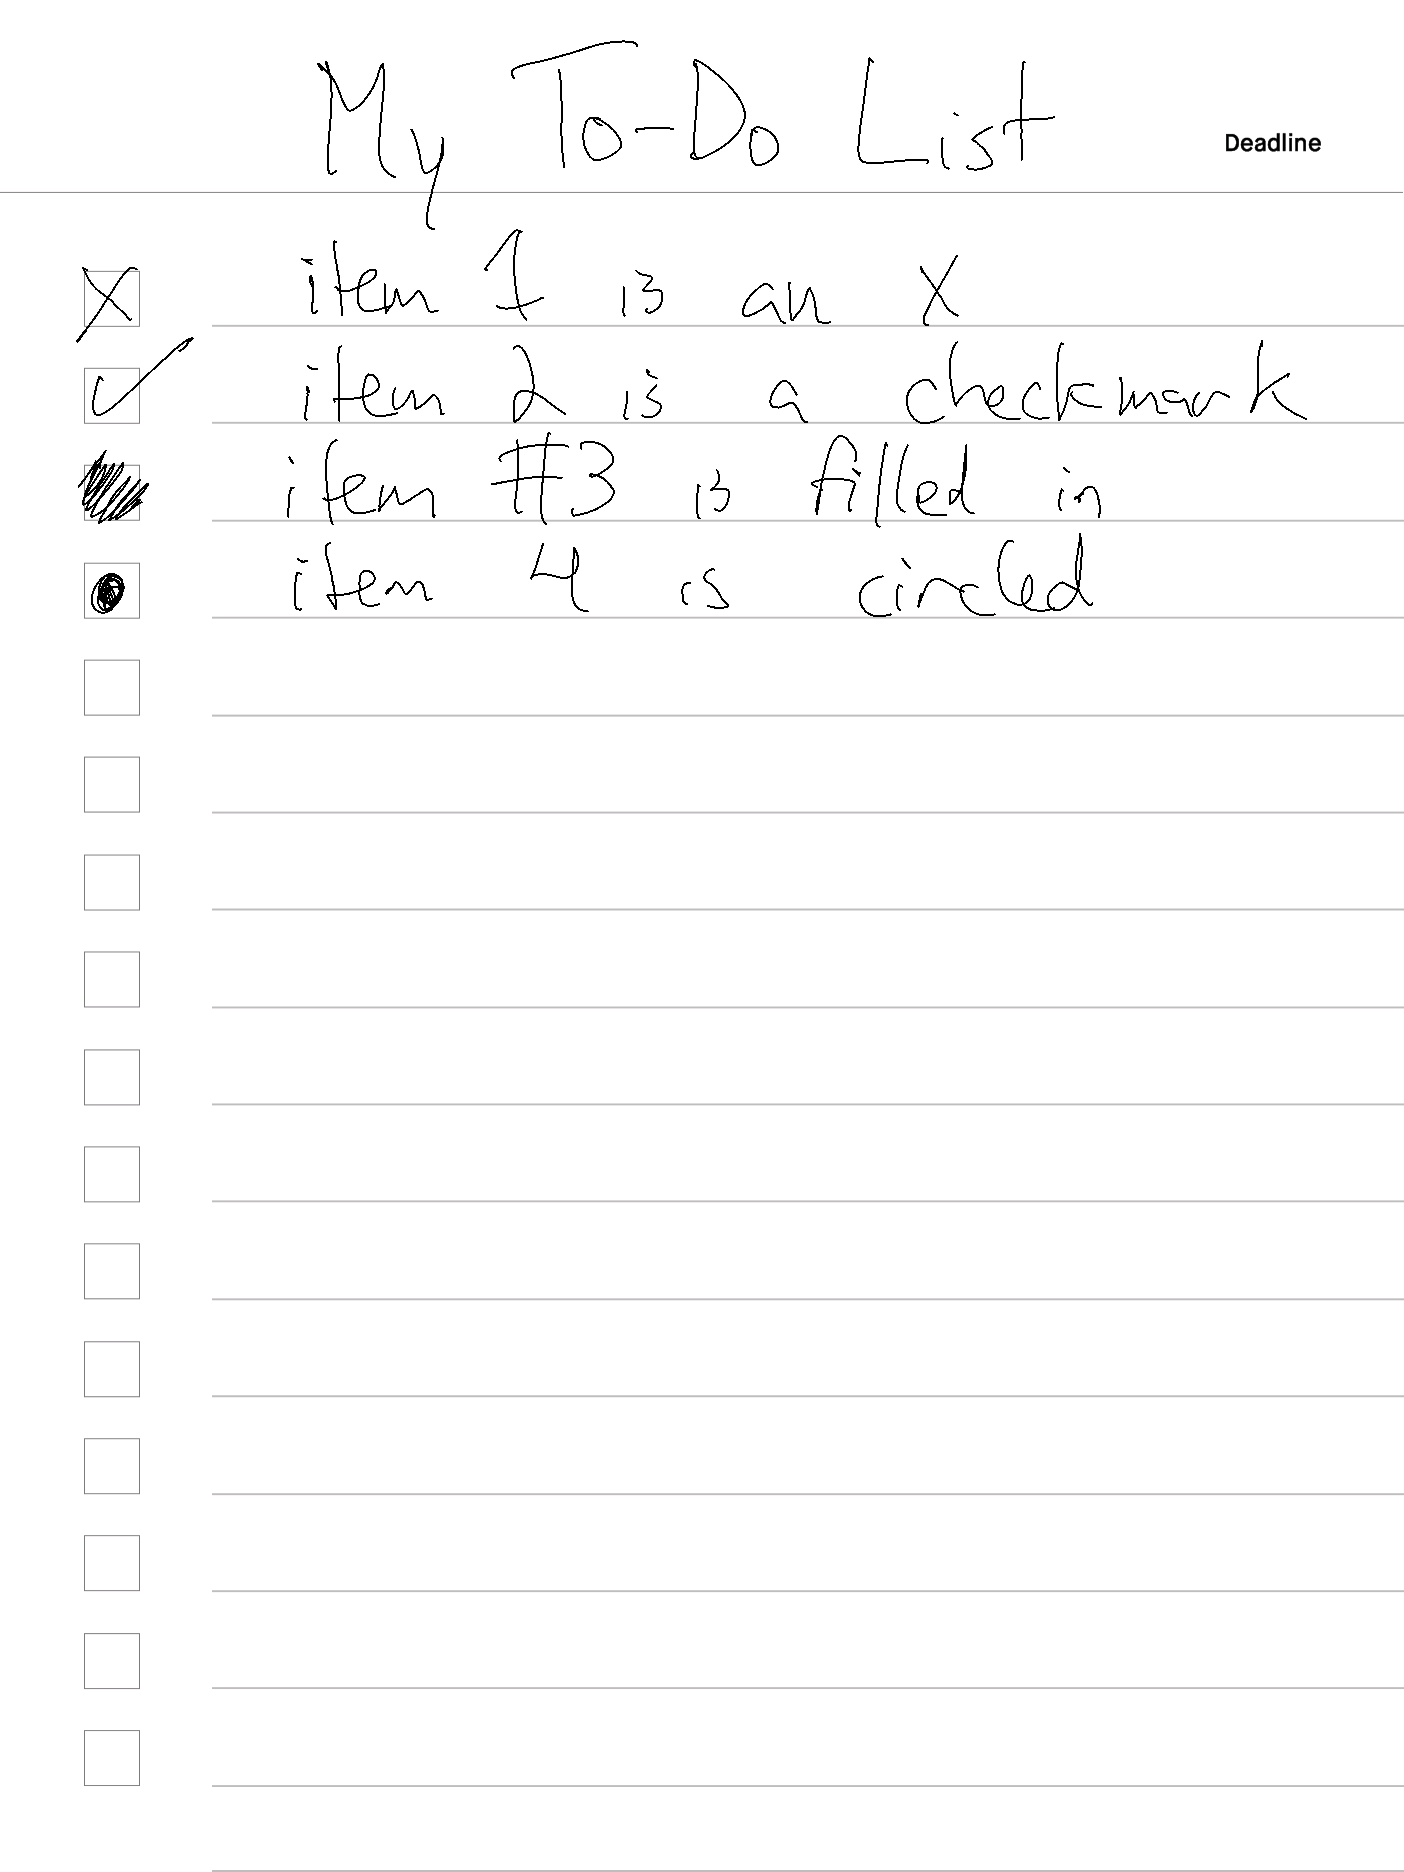 My To-Do List Deadline
item 1 is an X
item 2 is a checkmark
item #3 is filled in
item 4 is circled